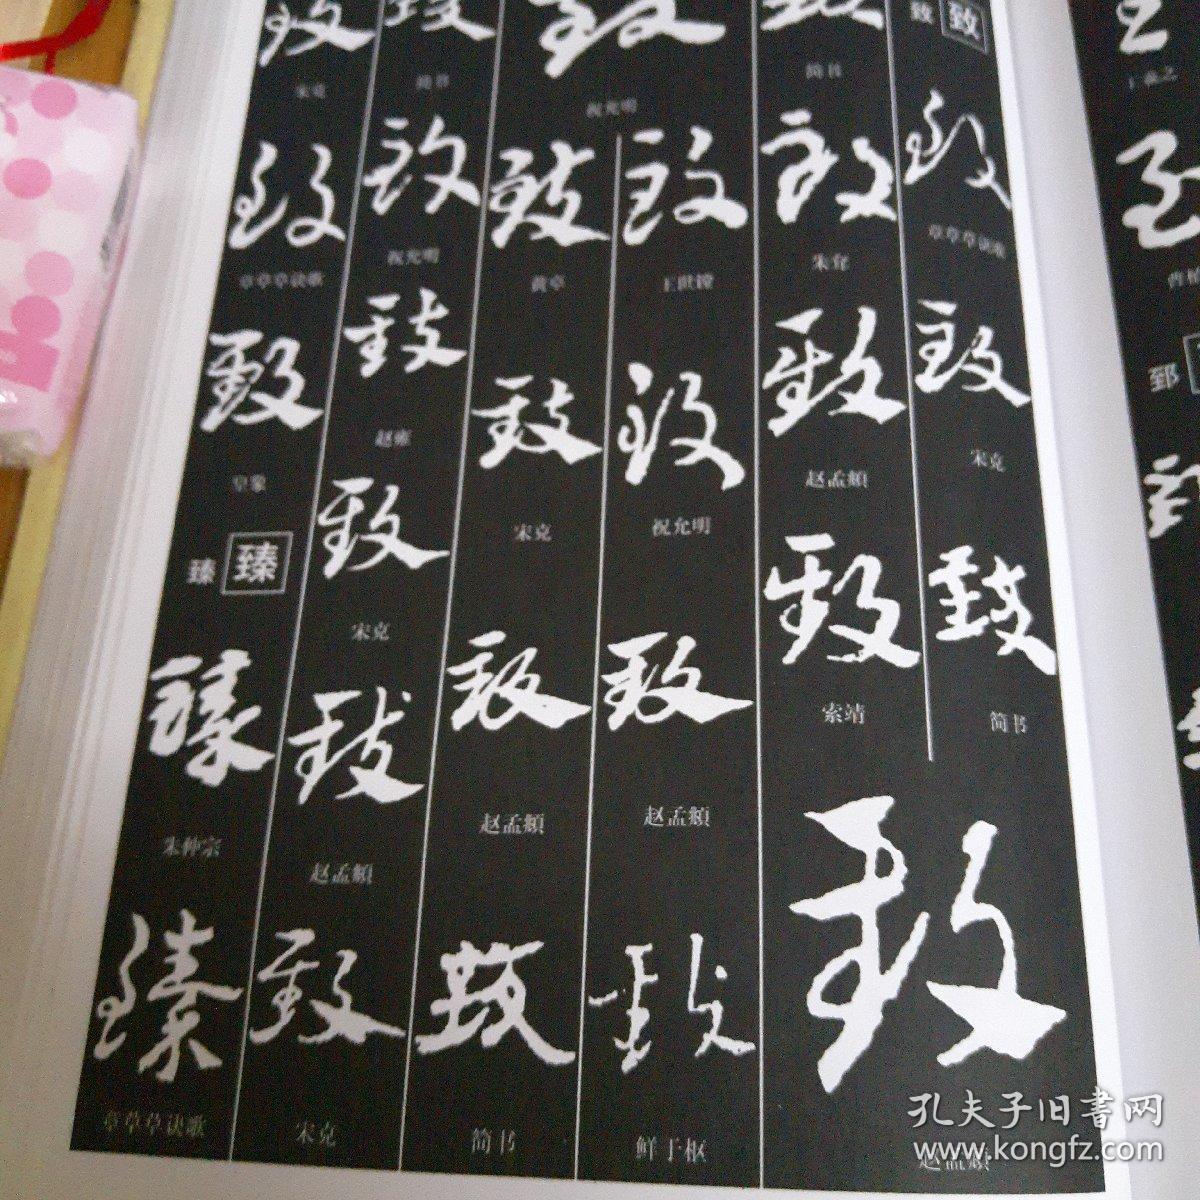 致 致
致 章草草诀歌
致 宋克
致 简书
致 简书
致 朱耷
致 赵孟頫
致 索靖
致 赵孟頫
致 祝允明
致 王世镗
致 祝允明
致 赵孟頫
致 鲜于枢
致 黄卓
致 宋克
致 赵孟頫
致 简书
致 简书
致 祝允明
致 赵雍
致 宋克
致 赵孟頫
致 宋克
致 宋克
致 章草草诀歌
致 皇象
臻 臻
臻 朱仲宗
臻 章草草诀歌
王羲之
郅
孔夫子旧书网
www.kongfz.com